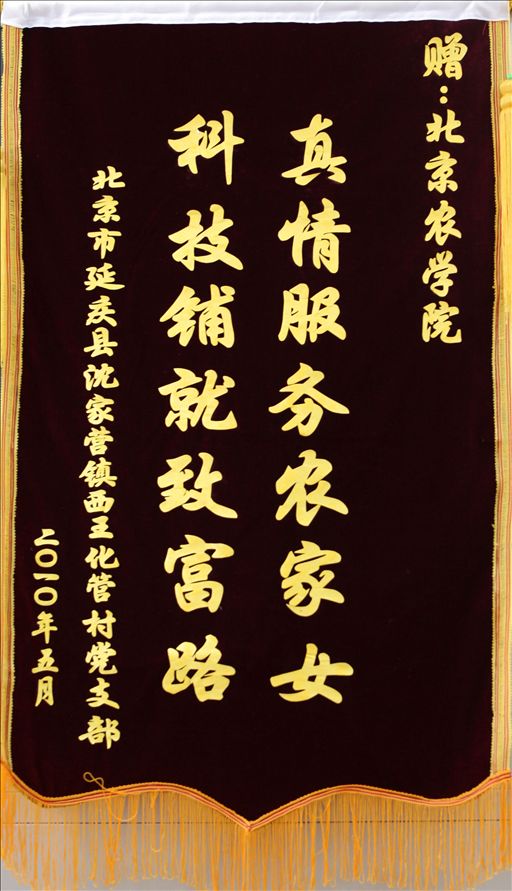 赠：北京农学院
真情服务农家女
科技铺就致富路
北京市延庆县沈家营镇西王化营村党支部
二〇一〇年五月